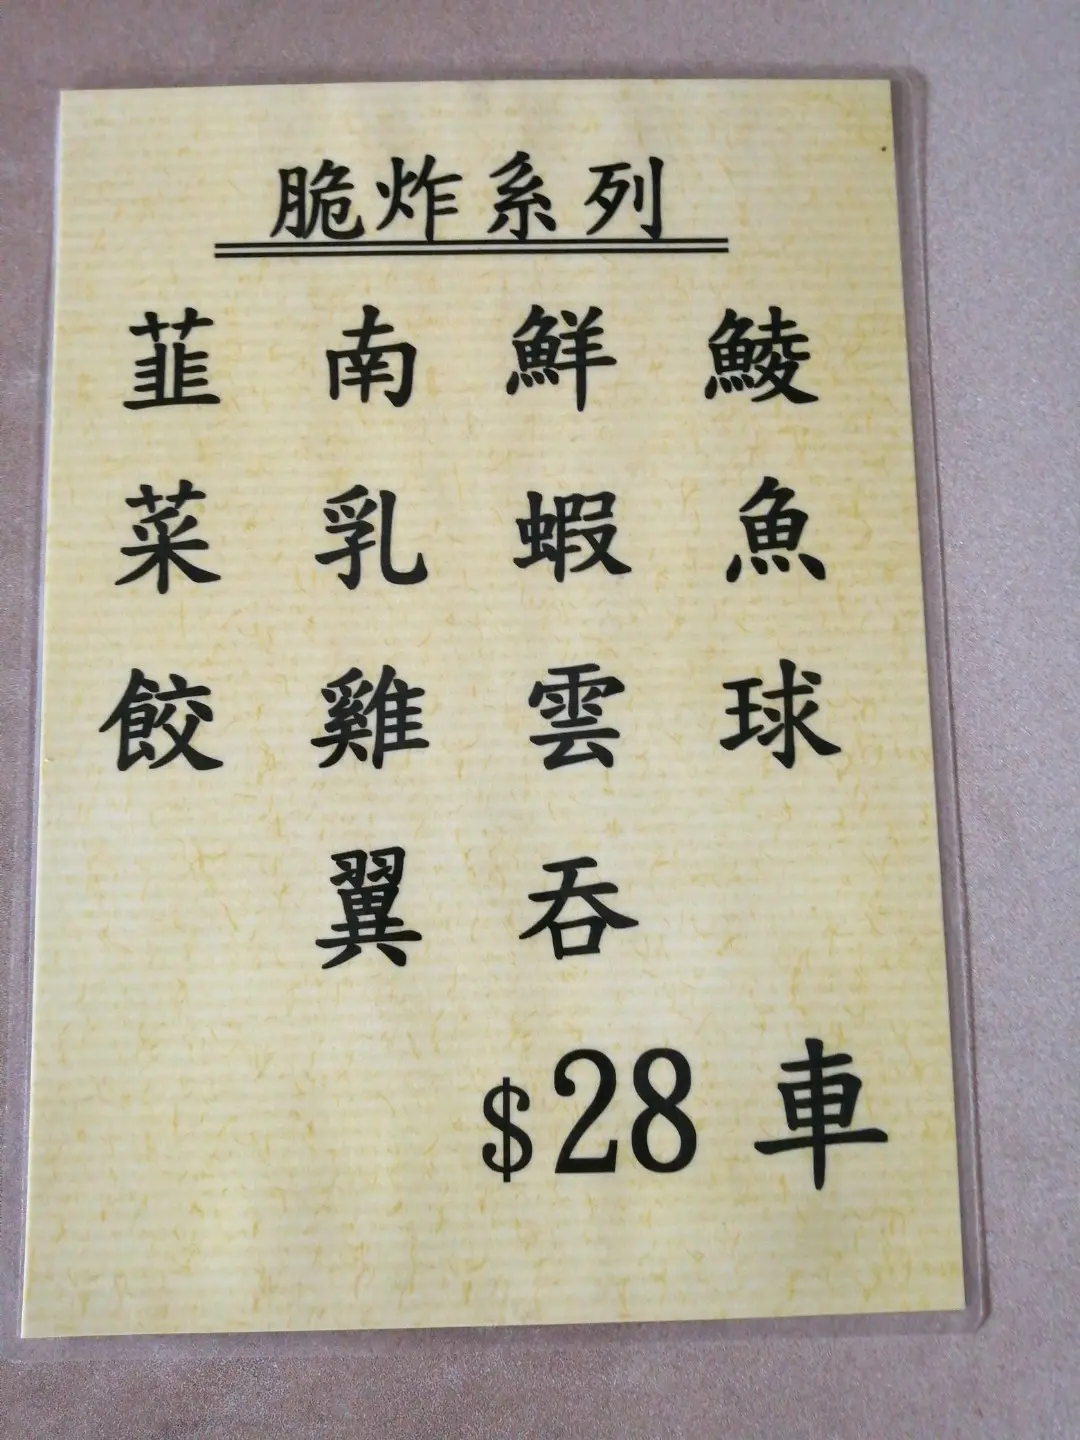 脆炸系列
鯪魚球
鮮蝦雲吞
南乳雞翼
韮菜餃
$28 車